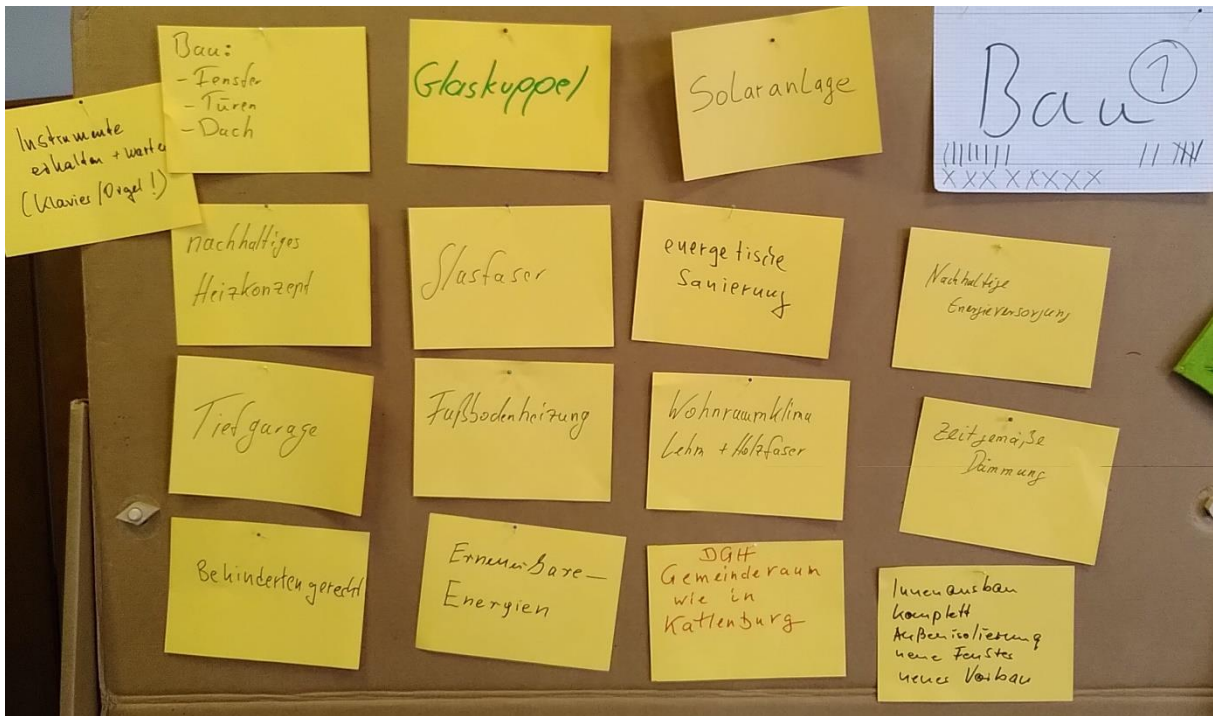 Bau:
- Fenster
- Türen
- Dach
Glaskuppel
Solaranlage
Bau 1
Instrumente
erhalten + warten
(Klavier/Orgel!)
nachhaltiges
Heizkonzept
Glasfaser
energetische
Sanierung
Nachhaltige
Energieversorgung
Tiefgarage
Fußbodenheizung
Wohnraumklima
Lehm + Holzfaser
Zeitgemäße
Dämmung
Behindertengerecht
Erneuerbare-
Energien
DGH
Gemeinderaum
wie in
Katlenburg
Innenausbau
komplett
Außenisolierung
neue Fenster
neuer Vorbau